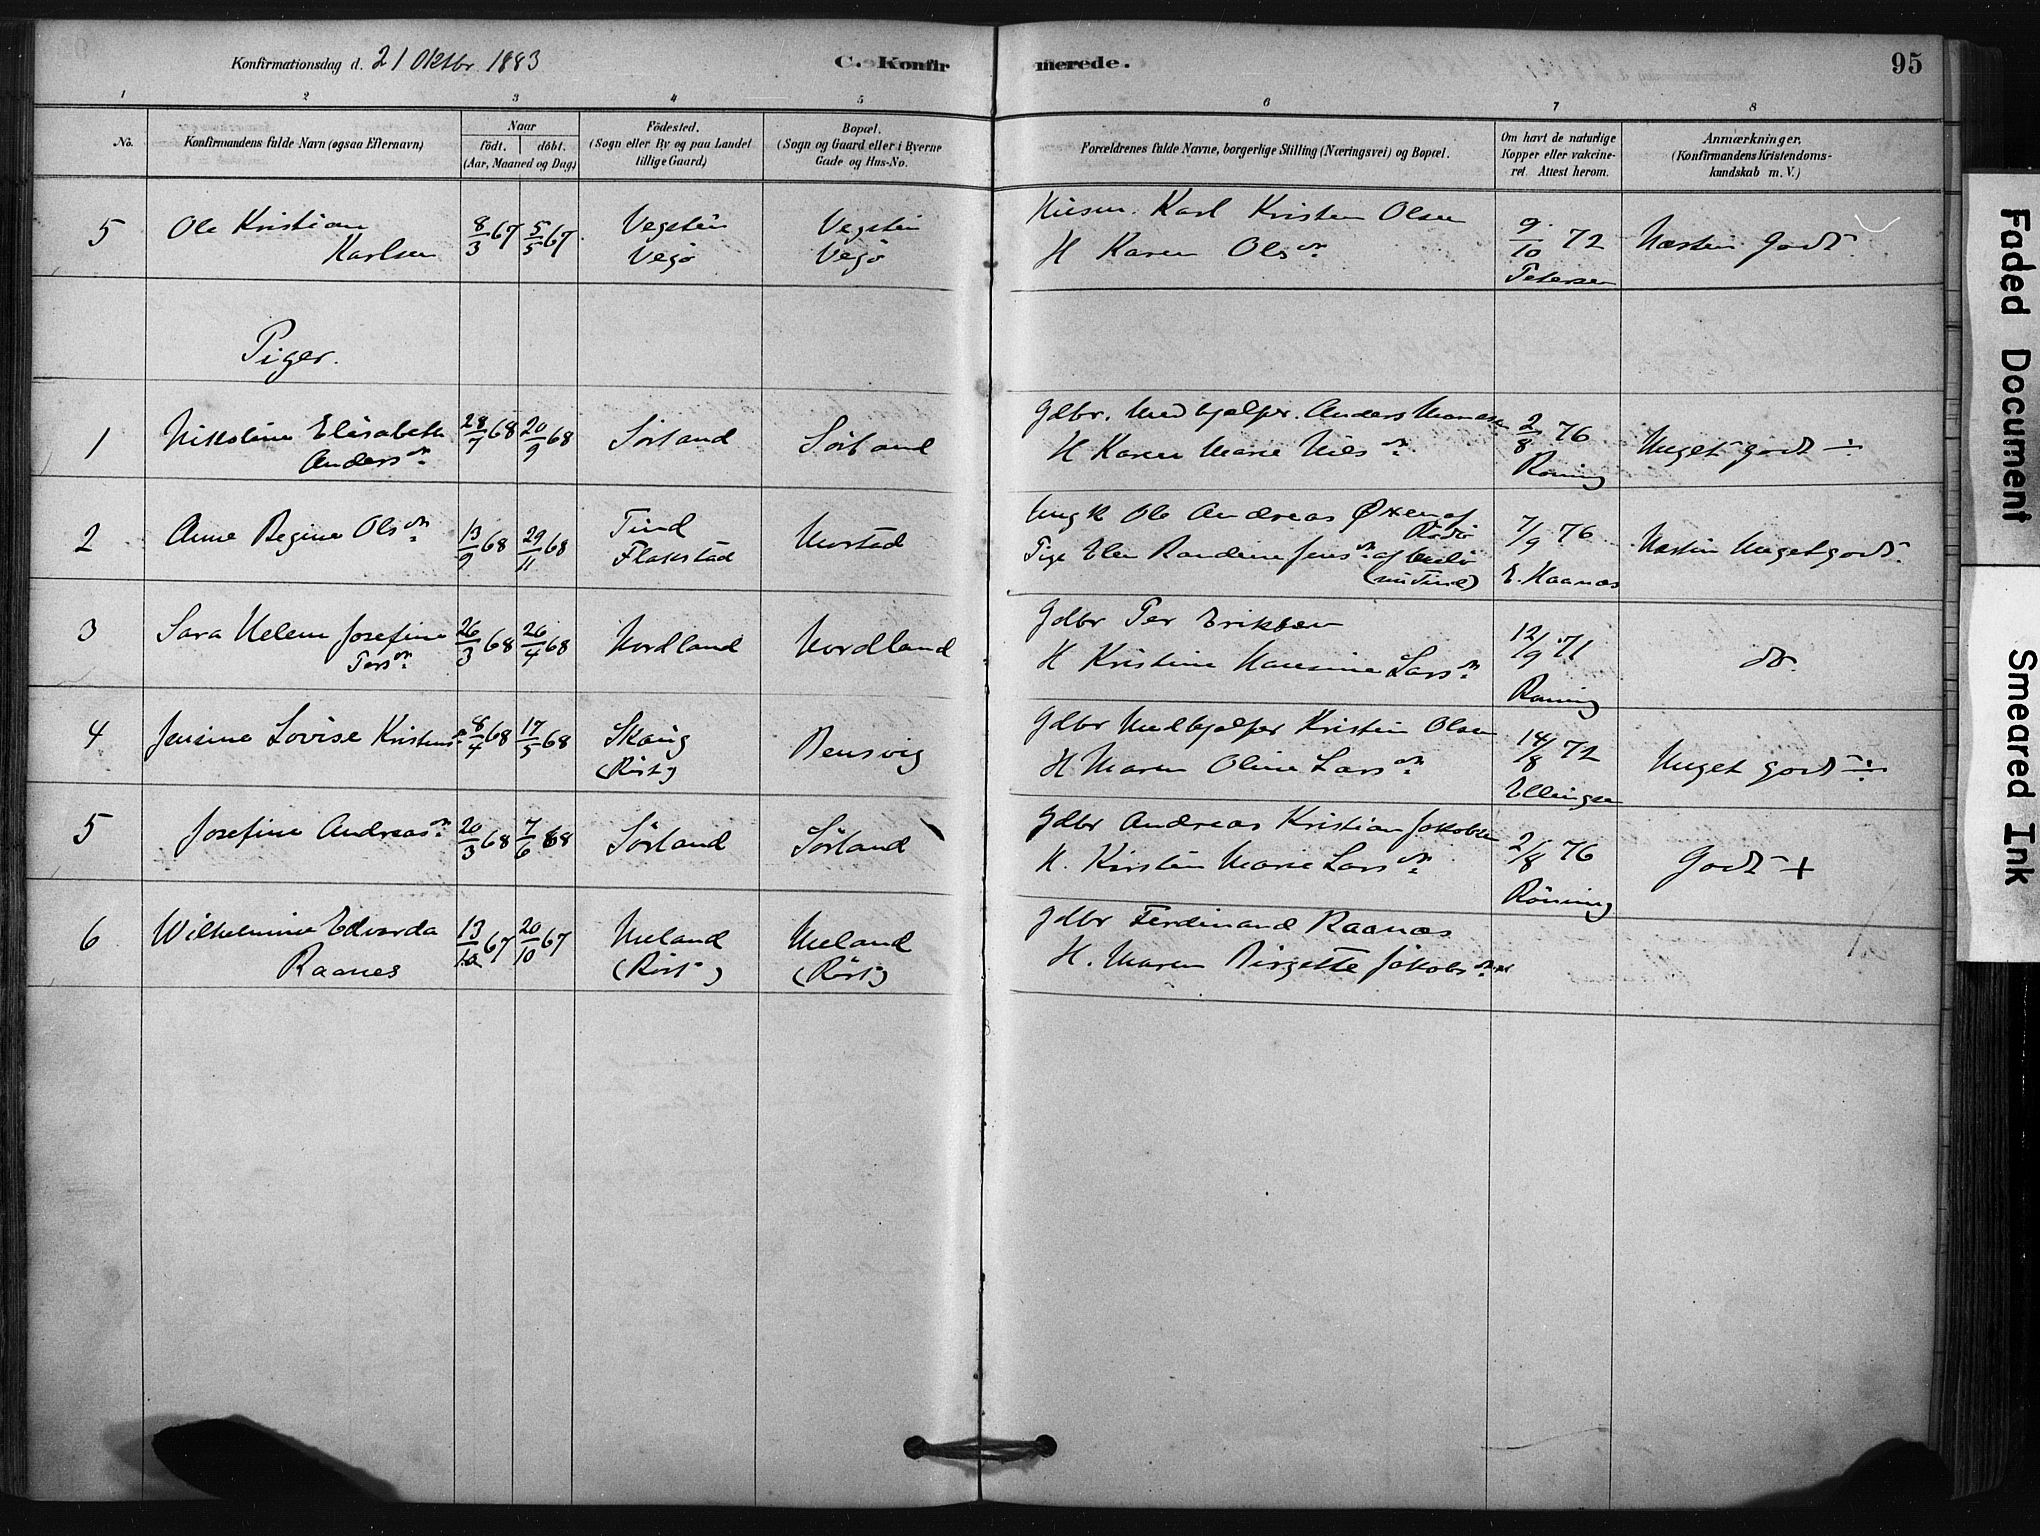 Konfirmationsdag d. 21 Oktbr 1883
C. Konfirmerede.
95
1 2 3 4 5 6 7 8
No.
Konfirmandens fulde Navn (ogsaa Efternavn)
Naar
födt. döbt.
(Aar, Maaned og Dag)
Födested.
(Sogn eller By og paa Landet
tillige Gaard)
Bopæl.
(Sogn og Gaard eller i Byerne
Gade og Hus-No.
Forældrenes fulde Navne, borgerlige Stilling (Næringsvei) og Bopæl.
Om havt de naturlige
Kopper eller vakcine-
ret. Attest herom.
Anmærkninger.
(Konfirmandens Kristendoms-
kundskab m. V.)
5 Ole Kristian
Karlsen
8/3 67 5/5 67
Vegsten
Vegö
Vegsten
Vegö
Husm. Karl Kristen Olsen
H Karen Olsdr
9/10 72
Petersen
Næsten Godt
Piger.
1 Nikoline Elisabeth
Andersdr
28/7 68 20/9 68
Sörland
Sörland
Gdbr. Medhjælper. Anders Monsen
H Karen Marie Nilsdr
2/8 76
Röning
Meget godt ÷
2 Anne Regine Olsdr
13/9 68 29/11 68
Tind
Flakstad
Mostad
Ungk Ole Andreas Öxen af
Rödö
Pige Elen Randine Jensdr af
(nu Tind)
7/9 76
E. Haanæs
Næsten Meget godt
3 Sara Helene Josefine
Persdr
26/3 68 26/4 68
Nordland
Nordland
Gdbr Per Eriksen
H Kristine Hansine Larsdr
12/9 71
Röning
do.
4 Jensine Lovise Kristensdr
8/4 68 17/5 68
Skaug
(Röst)
Rensvig
Gdbr Medhjælper Kristen Olsen
H Maren Oline Larsdr
14/8 72
Ellingsen
Meget godt ÷
5 Josefine Andreasdr
20/3 68 7/6 68
Sörland
Sörland
Gdbr Andreas Kristian Jakobsen
H. Kirsten Marie Larsdr
2/8 76
Rönning
Godt +
6 Wilhelmine Edvarda
Raanes
13/10 67 20/10 67
Meland
(Röst)
Meland
(Röst)
Gdbr Ferdinand Raanæs
H. Maren Birgette Jakobsdr
Faded Document
Smeared Ink